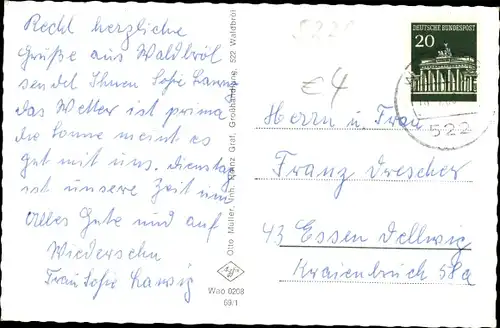 Recht herzliche
Grüße aus Waldbröl
sendet Ihnen Sofie Lanvig
das Wetter ist prima
die Sonne meint es
gut mit uns. Dienstag
ist unsere Zeit um
Alles Gute und auf
Wiedersehn
Frau Sofie Lanvig
Otto Müller, Inh. Heinz Graf, Großhandlung, 522 Waldbröl
Wao 0208
69/1
€4
DEUTSCHE BUNDESPOST
20
522
Herrn u. Frau
Franz Drescher
43 Essen Dellwig
Kraienbruch 58a